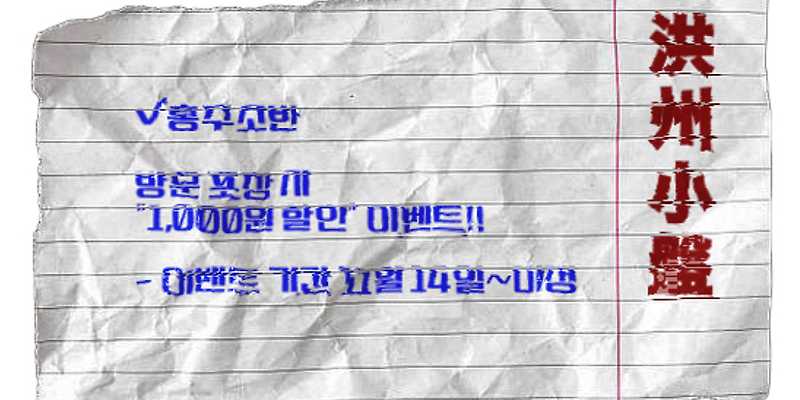 ✓홍주소반
방문 포장 시
"1,000원 할인" 이벤트!!
- 이벤트 기간 11월 14일~미정
洪州小盤